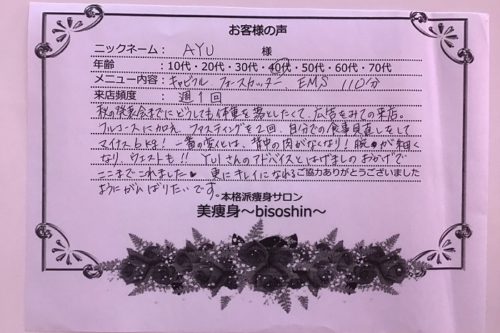 お客様の声
ニックネーム： AYU 様
年齢 ：10代・20代・30代・40代・50代・60代・70代
メニュー内容：キャビフル ファーストカッター、EMS 110分
来店頻度 ：週1回
秋の発表会までにどうしても体重を落としたくて、広告をみての来店。
フルコースに加え、ファスティングを2回、自分での食事見直しをして
マイナス6kg！ 一番の変化は、背中の肉がなくなり！腕が細く
なり、ウエストも!! YUIさんのアドバイスとはげましのおかげで
ここまでこれました♥ 更にキレイになれる
ご協力ありがとうございました
ようにがんばりたいです。
本格派痩身サロン
美痩身〜bisoshin〜